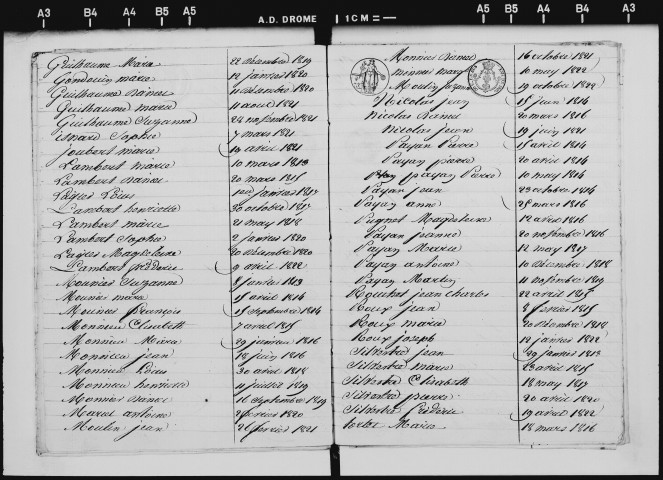 A3 B4 A4 B5 A5 A.D. DROME 1CM A5 B5 A4 B4 A3
Guilhaume Marie 22 Décembre 1819
Gondouin marie 12 janvier 1820
Guilhaume 1820
Guilhaume marie 11 aout 1821
Guilhaume Suzanne 24 novembre 1821
Isnard Sophie 7 mars 1821
Joubert marie 19 avril 1821
Lambert marie 10 mars 1813
Lambert 20 mars 1815
Lagier Louis janvier 1817
Lambert henriette 30 octobre 1817
Lambert marie 21 may 1818
Lambert Sophie 2 janvier 1820
Lagier Magdeleine 20 décembre 1820
Lambert fréderic 9 avril 1822
Mounier Suzanne 8 janvier 1813
Mounier marie 15 avril 1814
Mounier françois 15 septembre 1814
Monnieu Elisabeth 7 avril 1815
Monnieu Marie 29 janvier 1816
Monnieu jean 18 juin 1816
Monnieu Louis 30 avril 1818
Monnieu henriette 11 juillet 1819
Monnier 16 septembre 1819
Marcel antoine 2 fevrier 1820
Moulin jean 21 fevrier 1821
Monnier 16 octobre 1821
10 may 1822
Moulin 19 octobre 1822
Nicolas jean 15 juin 1814
Nicolas 20 mars 1816
Nicolas jean 19 juin 1821
Payan Pierre 15 avril 1814
Payan pierre 20 avril 1814
payan Pierre 10 may 1814
Payan jean 23 octobre 1814
Payan anne 25 mars 1816
Magdeleine 12 avril 1816
Payan jeanne 20 novembre 1816
Payan Marie 12 may 1817
Payan antoine 10 Décembre 1818
Payan Martin 11 novembre 1819
jean charles 22 avril 1815
Roux jean 8 fevrier 1815
Roux marie 20 décembre 1818
Roux joseph 12 janvier 1822
Silvestre jean 29 janvier 1813
Silvestre marie 23 avril 1815
Silvestre Elisabeth 18 may 1817
Silvestre pierre 20 avril 1820
Silvestre fréderic 19 avril 1822
Marie 18 mars 1816